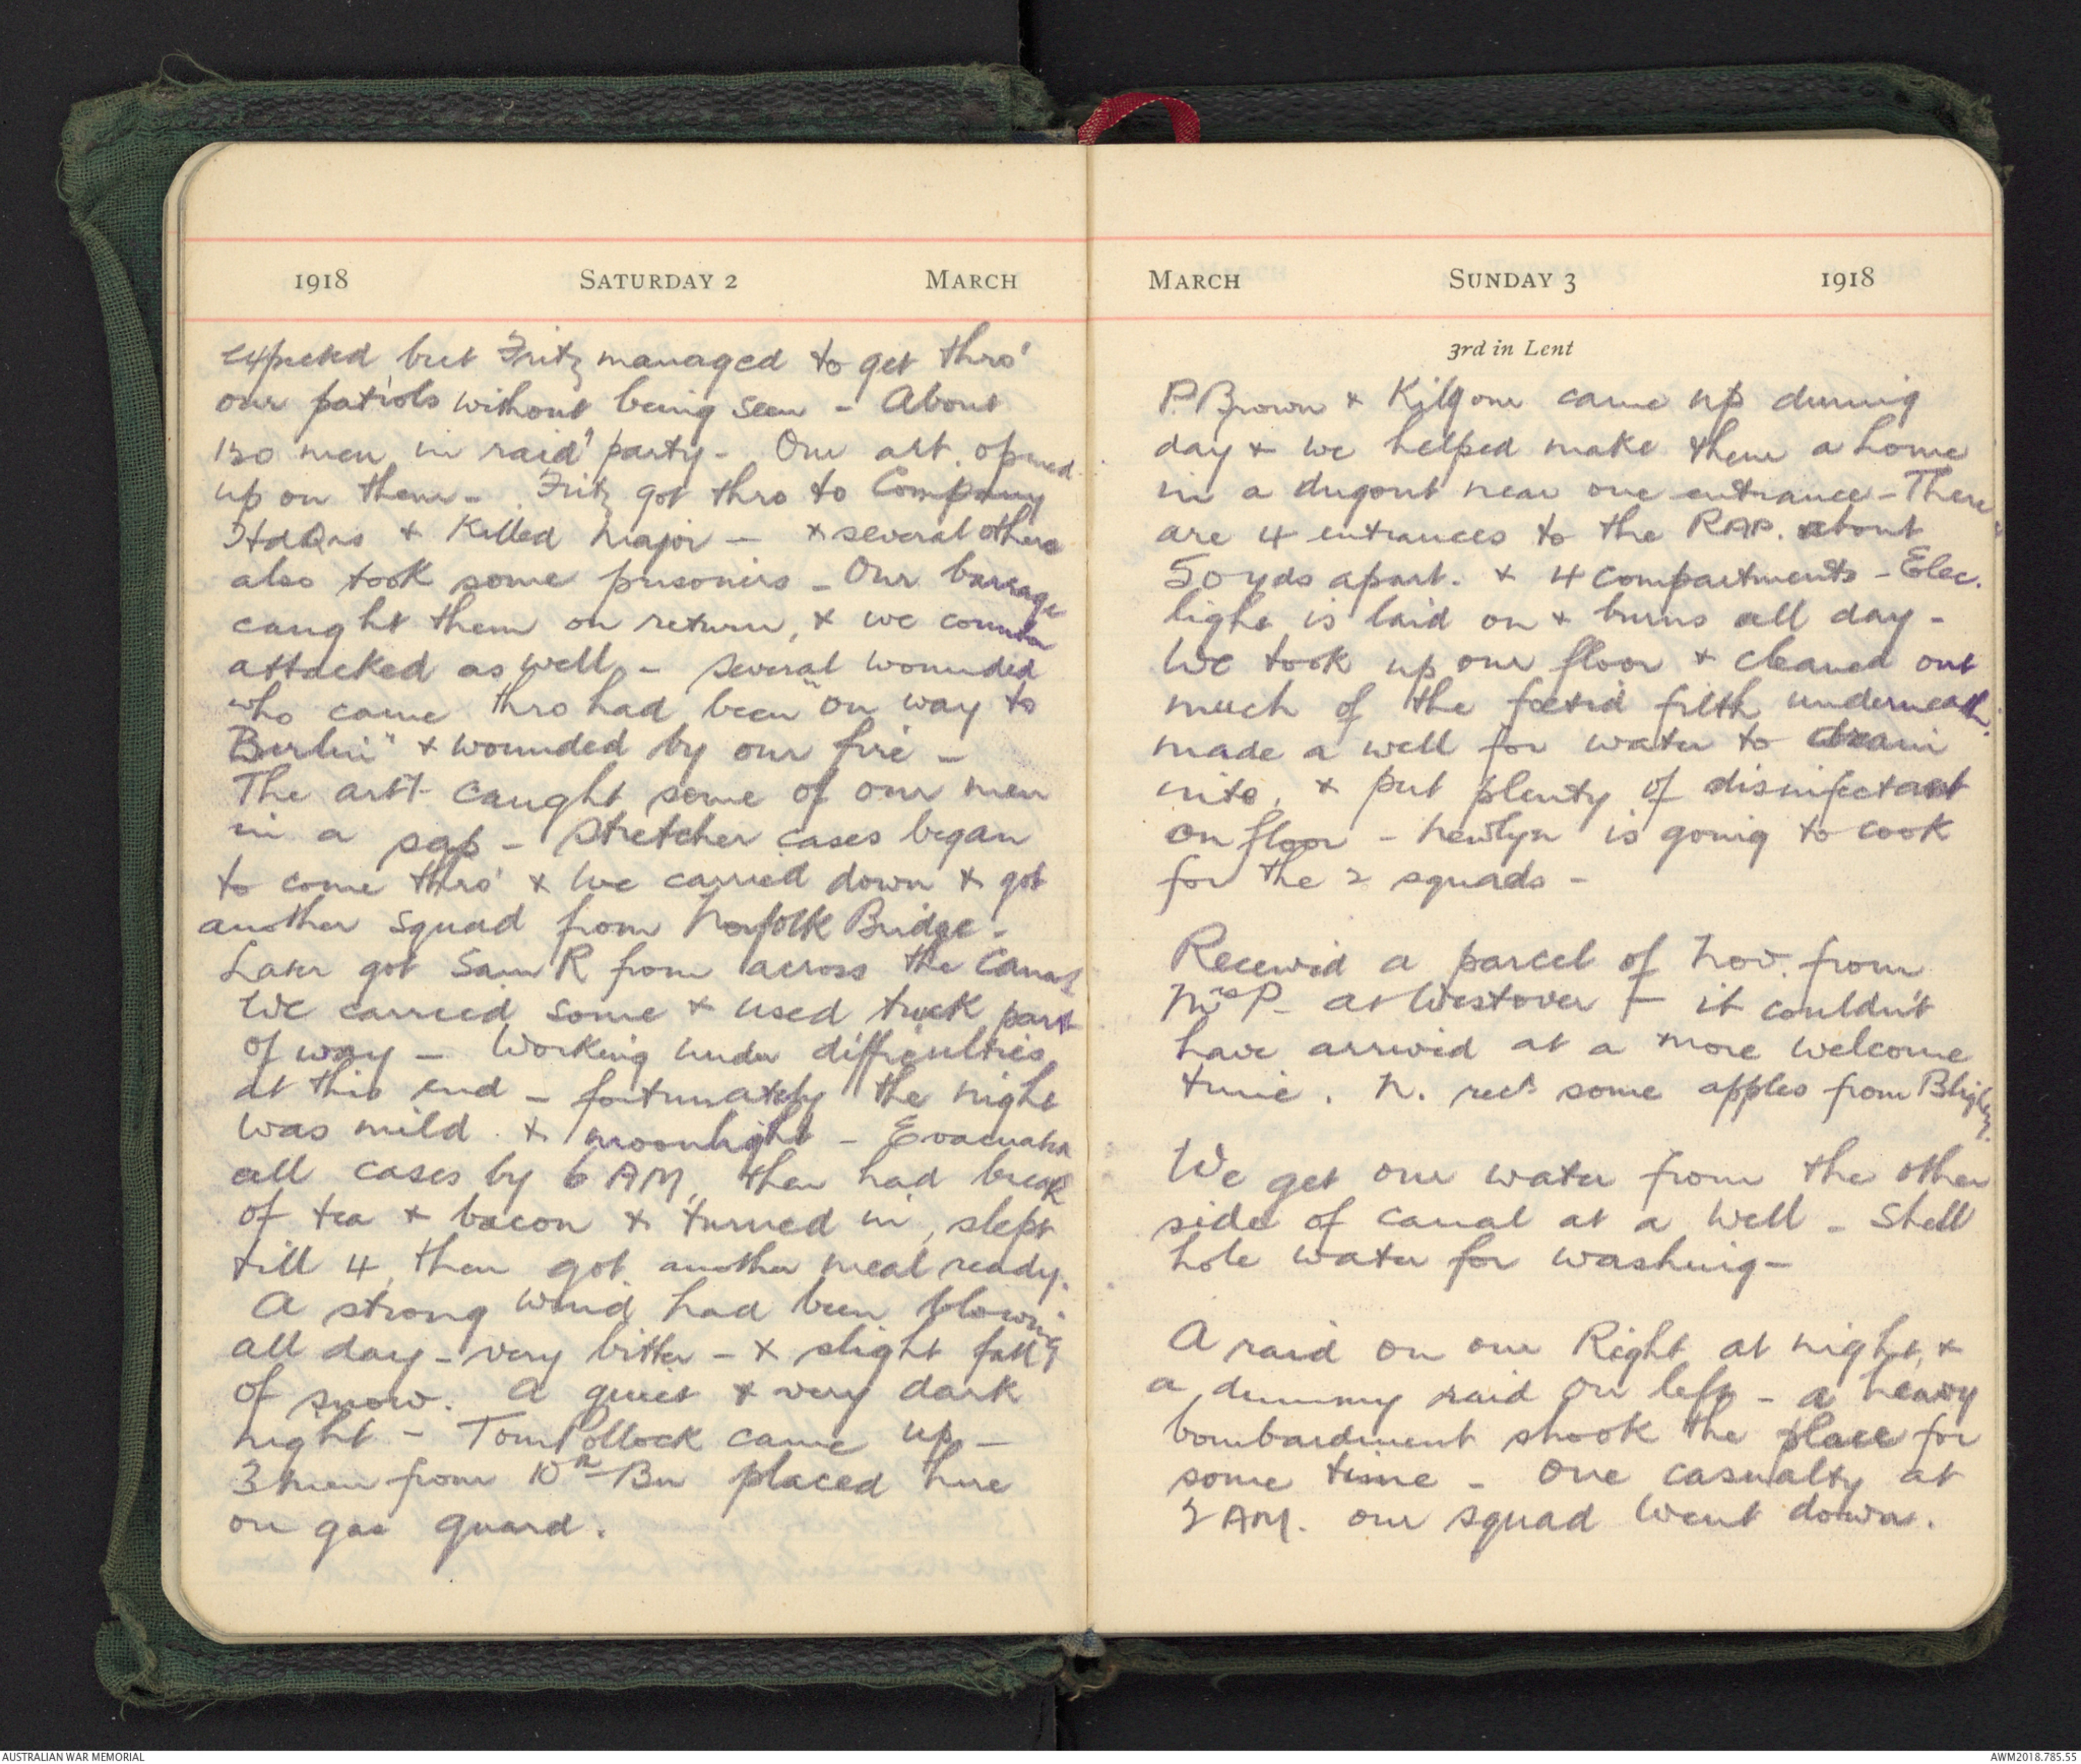 1918 SATURDAY 2 MARCH
expected but Fritz managed to get thro'
our patrols without being seen - About
150 men in raid' party - Our art. opened
up on them - Fritz got thro to Company
HdQrs & Killed Major - & several others
also took some prisoners - Our barrage
caught them on return, & we counter
attacked as well, - several wounded
who came thro had been "on way to
Berlin" & wounded by our fire -
The art'l caught some of our men
in a sap - Stretcher cases began
to come thro' & we carried down & got
another squad from Norfolk Bridge -
Later got Sam R from across the Canal
We carried some & used truck part
of way - Working under difficulties
at this end - fortunately the night
was mild & moonlight - Evacuated
all cases by 6 AM, then had break
of tea & bacon & turned in, slept
till 4, then got another meal ready.
A strong wind had been blowing
all day - very bitter - & slight fall
of snow. A quiet & very dark
night - Tom Pollock came up -
3 men from 10th Bn placed here
on gas guard.
MARCH SUNDAY 3 1918
3rd in Lent
P. Brown & Kilgour came up during
day & we helped make them a home
in a dugout near one entrance - There
are 4 entrances to the RAP. about
50 yds apart. & 4 compartments - Elec.
light is laid on & burns all day -
We took up our floor & cleaned out
much of the foetid filth underneath,
made a well for water to drain
into, & put plenty of disinfectant
on floor - Newlyn is going to cook
for the 2 squads -
Received a parcel of Nov. from
Mrs P - at Westover - it couldn't
have arrived at a more welcome
time. N. recd some apples from Blighty.
We get our water from the other
side of canal at a well - Shell
hole water for washing -
A raid on our Right at night, &
a dummy raid on left - a heavy
bombardment shook the place for
some time - One casualty at
2 AM. our squad went down.
AUSTRALIAN WAR MEMORIAL
AWM2018.785.55